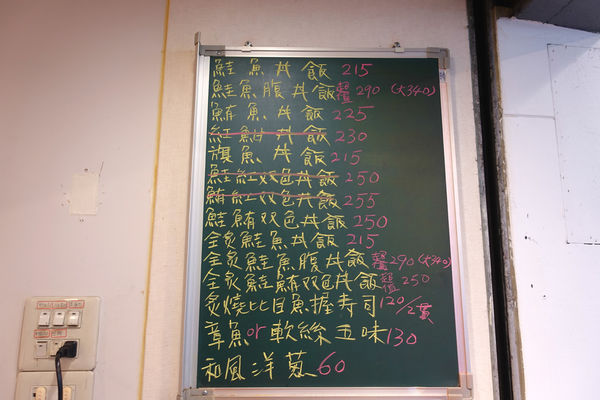 鮭魚丼飯 215
鮭魚腹丼飯 290 (大340)
鮪魚丼飯 225
紅魽丼飯 230
旗魚丼飯 215
鮭紅双色丼飯 250
鮪紅双色丼飯 255
鮭鮪双色丼飯 250
全炙鮭魚丼飯 215
全炙鮭魚腹丼飯 290 (大340)
全炙鮭鮪双色丼飯 250
炙燒比目魚握壽司 120/2貫
章魚or軟絲五味 130
和風洋蔥 60